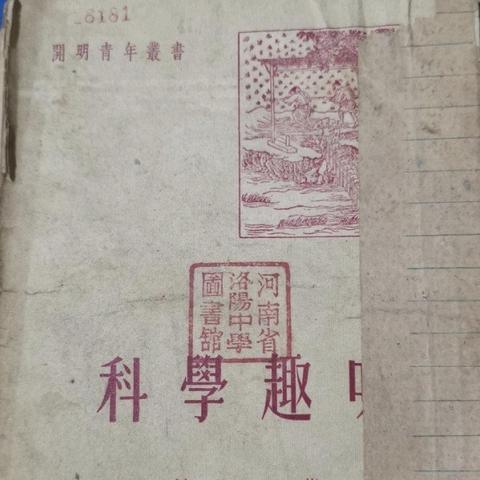 6181
開明青年叢書
河南省
洛陽中學
圖書館
科學趣